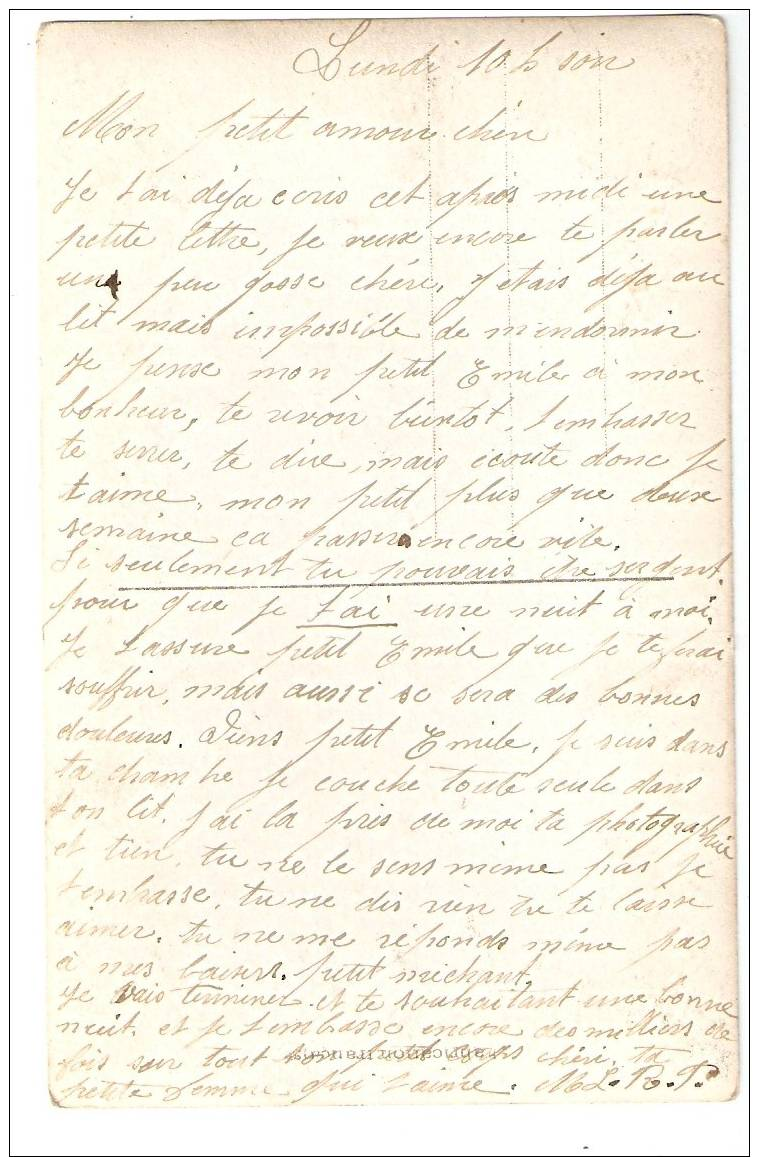 Lundi 10 h soir
Mon petit amour chéri
Je t'ai déja ecris cet après midi une
petite lettre, je veux encore te parler
un peu gosse chéri, j'etais déja au
lit mais impossible de m'endormir
Je pense mon petit Emile à mon
bonheur, te revoir bientot, t'embasser
te serrer, te dire, mais ecoute donc je
t'aime, mon petit plus que deux
semaine ca passera encore vite.
Si seulement tu pouvais être
pour que je t'ai une nuit à moi,
Je t'assure petit Emile que je te ferai
souffrir, mais aussi se sera des bonnes
douleures. Tiens petit Emile, je suis dans
ta chambe je couche toute seule dans
ton lit. j'ai la près de moi ta photographie
et tien, tu ne le sens même pas je
t'embasse, tu ne dis rien tu te laisse
aimer. tu ne me réponds même pas
à mes baisers. petit michant,
Je vais terminer et te souhaitant une bonne
nuit. et je t'embasse encore des milliers de
fois sur tout ton petit corps chéri. ta
petite femme qui t'aime. M L. R. P.
Fabrication française